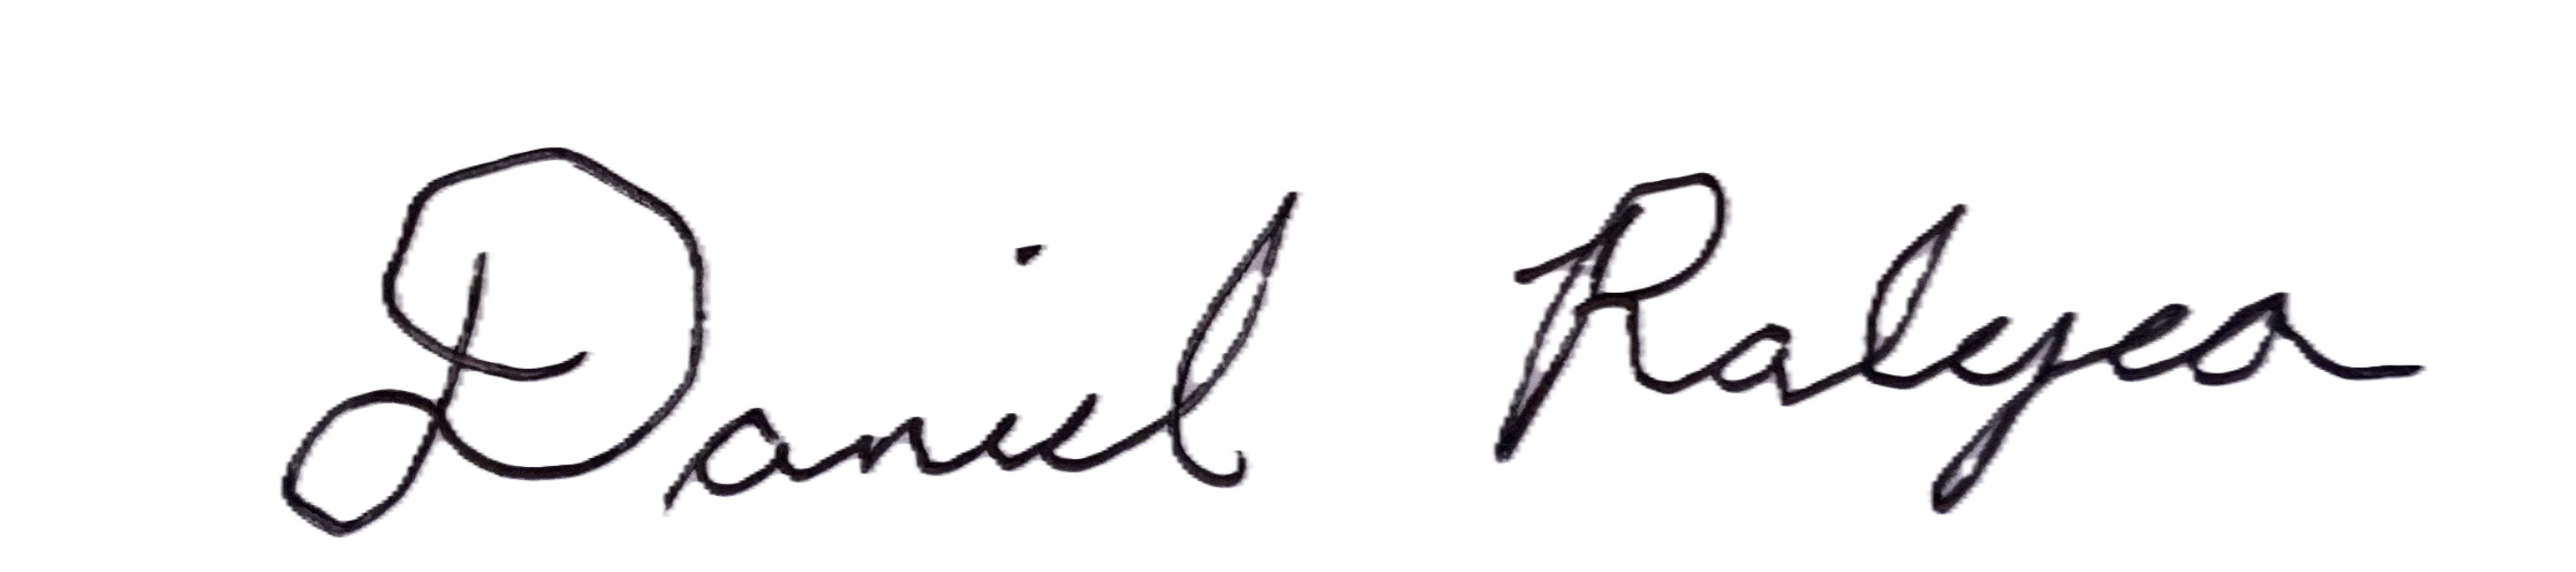 Daniel Ralyea